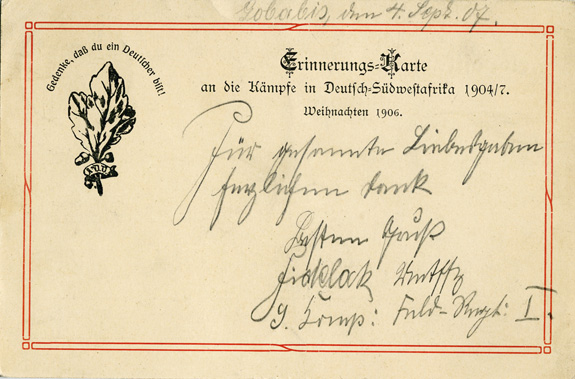 Gobabis, den 4. Sept. 07.
Gedenke, daß du ein Deutscher bist!
Erinnerungs-Karte
an die Kämpfe in Deutsch-Südwestafrika 1904/7.
Weihnachten 1906.
Für gesannte Liebesgaben
herzlichen Dank
Besten Gruß
Utffz
9. Komp: Feld-Regt: I.